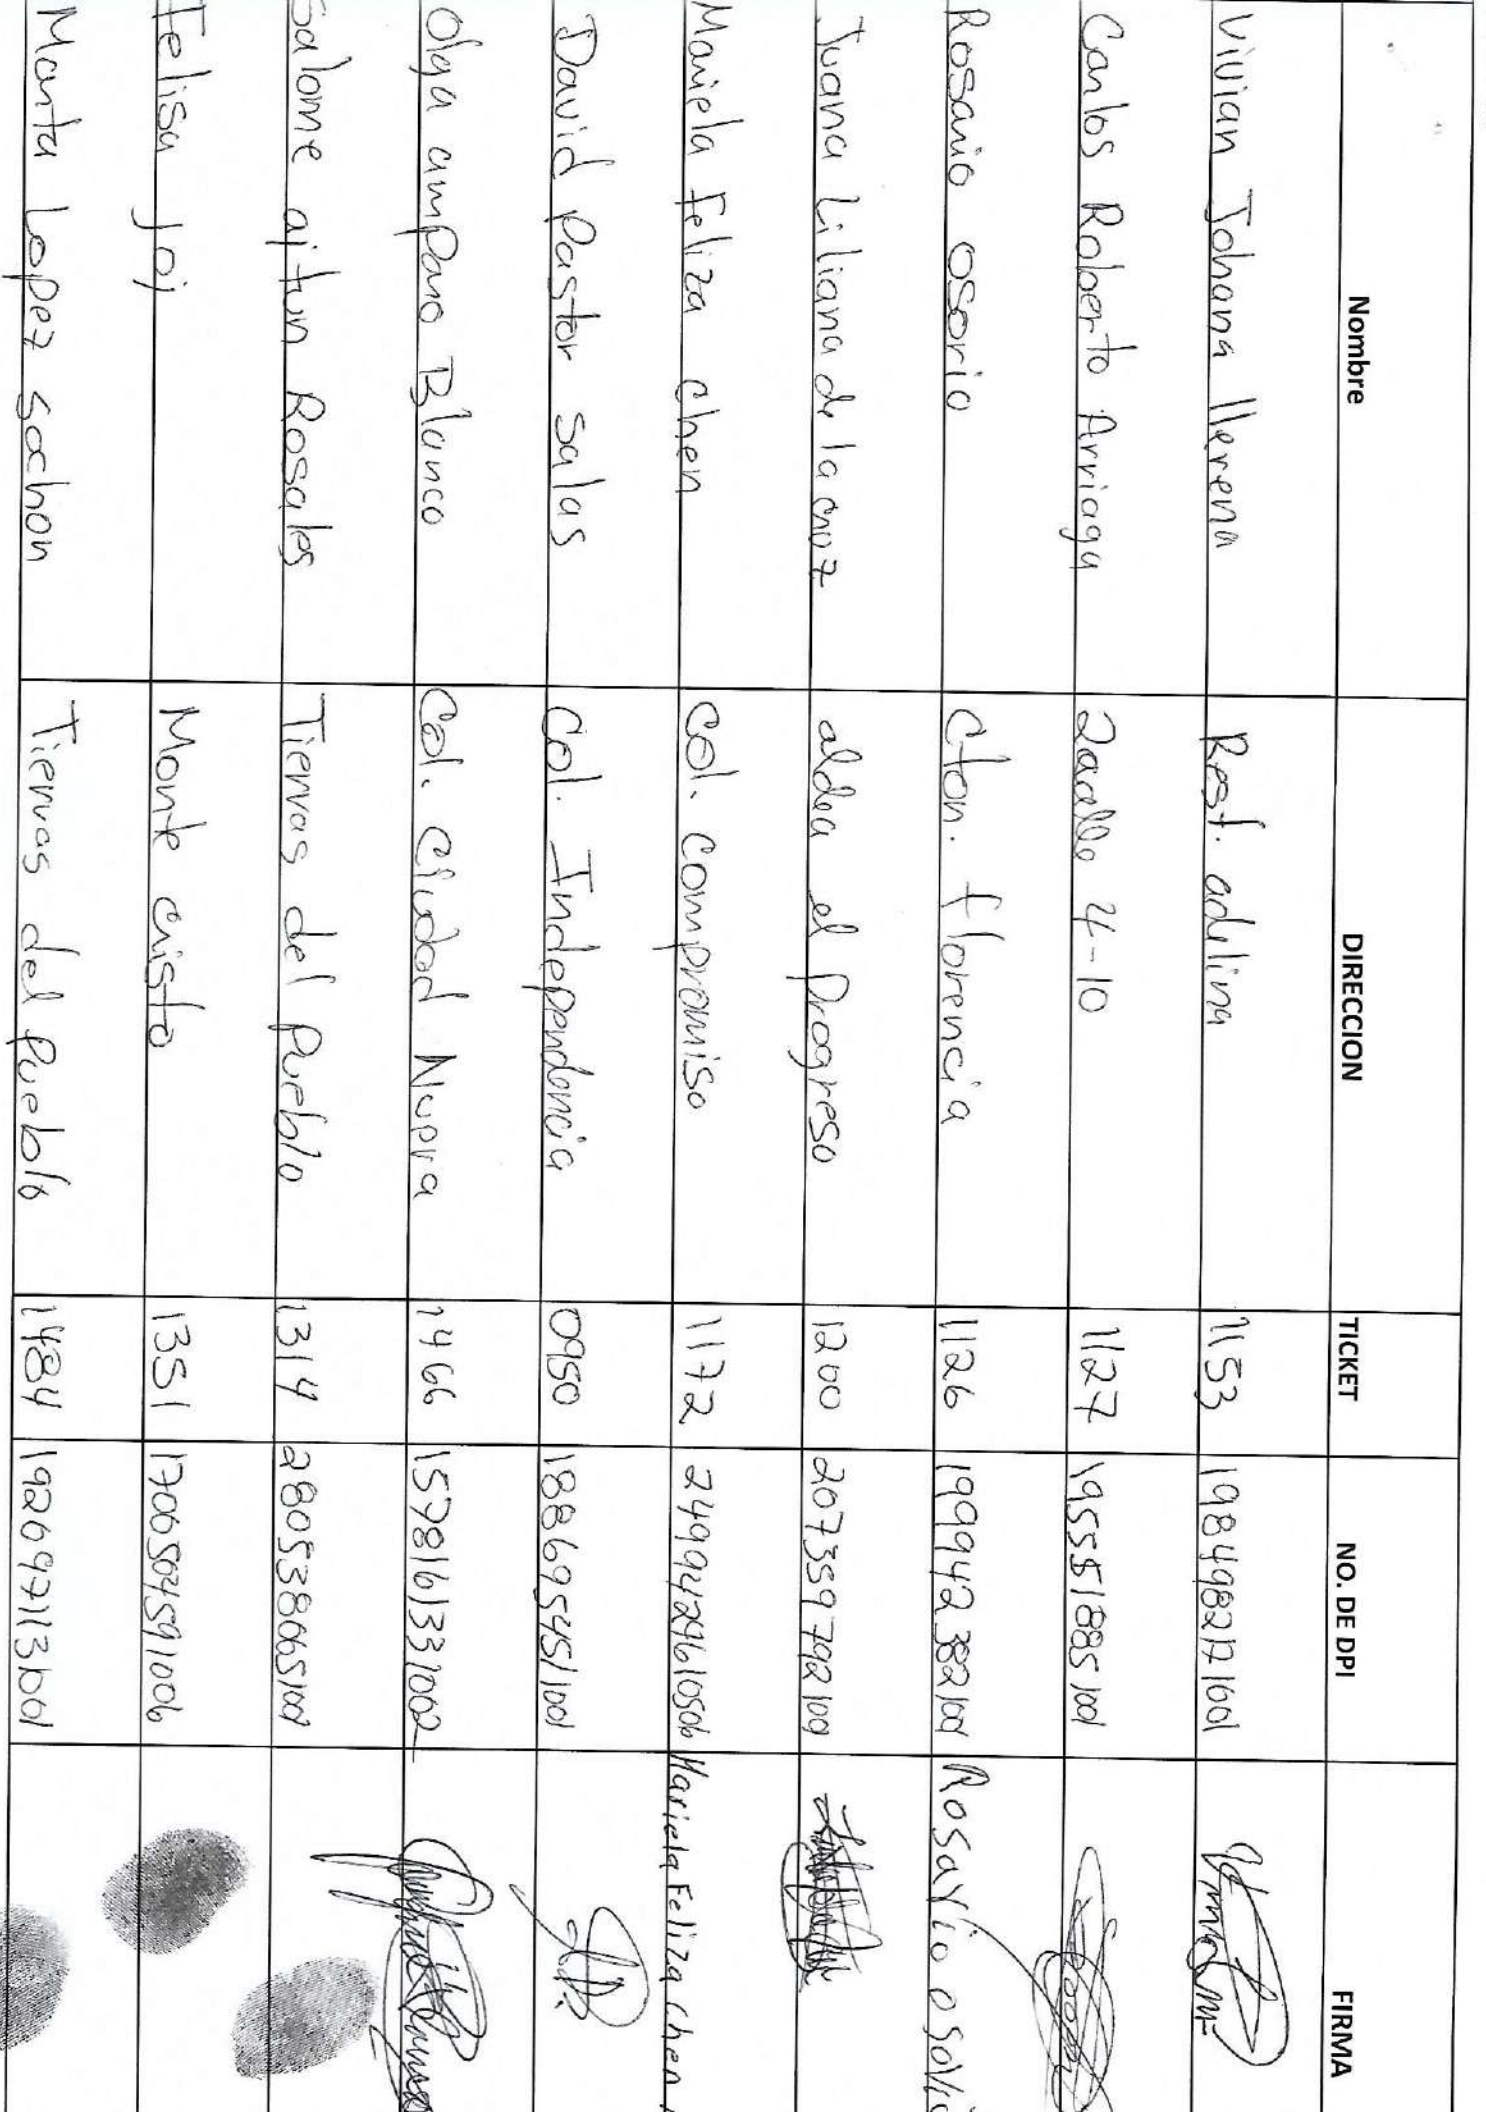 Nombre DIRECCION TICKET NO. DE DPI FIRMA
Vivian Johana llerena Rest. adelina 1153 1984982171001
Carlos Roberto Arriaga 2acalle 4-10 1127 1955518851001
Rosario osorio Cton. florencia 1126 19999423821001 Rosario osorio
Juana Liliana de la cruz aldea el progreso 1200 2073597921001
Mariela Feliza chen col. compromiso 1172 2499429610506 Mariela Feliza Chen
David Pastor salas Col. Independencia 0950 1886954511001
Olga amparo Blanco Col. Ciudad Nueva 1466 1598161331002
Salome ajtun Rosales Tierras del Pueblo 1314 2805386651001
Felisa Joj Monte cristo 1351 1706504591006
Marta Lopez sochon Tierras del Pueblo 1484 1926971131001